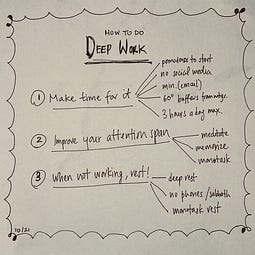 HOW TO DO
DEEP WORK
① Make time for it
pomodoros to start
no social media
min. (email)
60" buffers from mtgs.
3 hours a day max.
② Improve your attention span
meditate
memorize
monotask
③ When not working, rest!
deep rest
no phones / sabbath
monotask rest
10/21